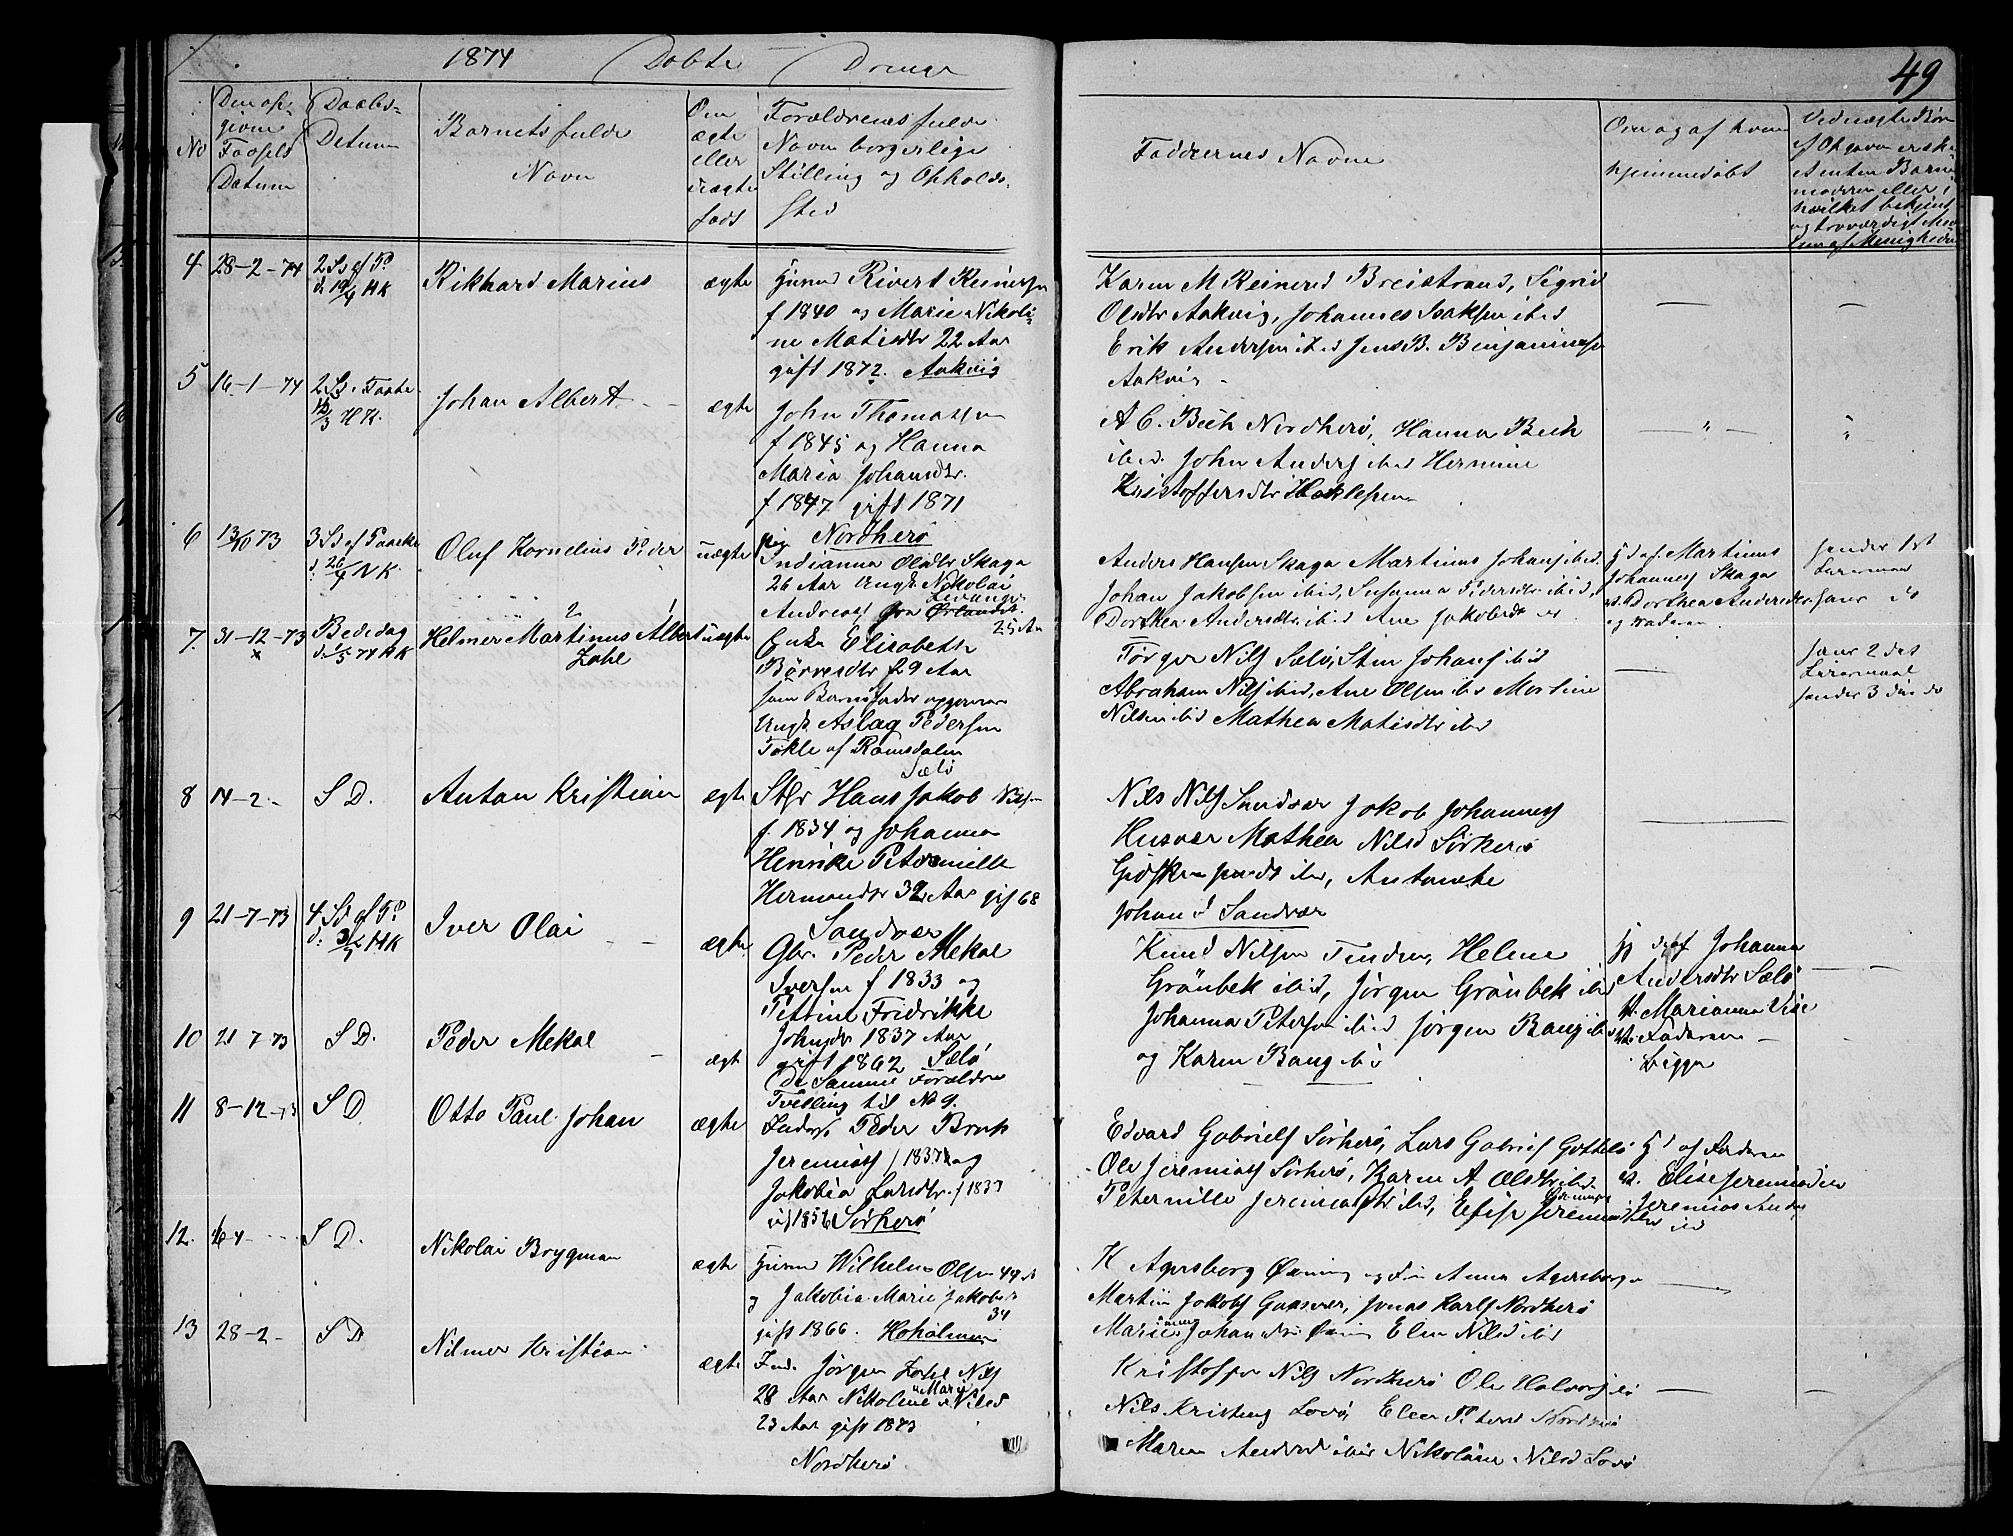 1874 Døbte Drenge
49
No
Den op-
givne
Fødsels
Datum
Daabs-
Datum
Barnets fulde
Navn
Om
ægte
eller
uægte
født
Forældrenes fulde
Navn borgerlige
Stilling og Opholds-
sted
Faddernes Navne
Om og af hvem
hjemmedøbt
4 28-2-74
Rikhard Marius
ægte
Huusm Rivert Reinertsen
f 1840 og Marie Nikoli-
ne Matisdtr 22 Aar
gift 1872. Aakvig
Karen M Reinersd Breistrand, Sigrid
Olsdtr Aakvig, Johannes Isaksen ibid
Erik Andersen ibid Jens B. Binjaminsen
Aakvig
5 16-1-74
2 S. i Faste
15/3 HK.
Johan Albert
ægte
John Thomassen
f 1845 og Hanna
Maria Johansdtr.
f 1847 gift 1871
Nordherø
A C. Bech Nordherø, Hanna Bech
ibid. John Anders ibid Hermine
Kristoffersdtr
6 13/10 73
3 S. ef Paaske
d: 26/4 NK.
Oluf Kornelius Peder
uægte
pig Indianna Olsdtr Skaga
26 Aar Ungk Nikolai
Andreass fra Ørlandet.
Levanger
25 Aar
Anders Hansen Skaga Martinus Johans ibid.
Johan Jakobsen ibid, Susanna Pedersdtr ibid,
Dorthea Andersdtr ibid Ane Jakobsdtr
Hjd af. Martinus
Johannes Skaga
vt. Dorthea Andersdtr
og Faderen
hendes 1st
Leiermaal
hans do
7. 31-12-73
Bededag
d. 1/5 74 HK
Helmer Martinus Albert
Zahl
uægte
Enke Elisabeth
Børresdtr 29 Aar
som Barnefader opgiven
Ungk. Aslag Pedersen
Tøkle af Ramsdalen
Sælø
Tørger Nils Sælø, Sten Johans ibid
Abraham Nils ibid, Ane Olsen ibid Martine
Nilsen ibid Mathea Matisdtr ibid
hans 2det
Leiermaal
hendes 3die do
8 14-2-
S D.
Anton Kristian
ægte
Hans Jakob Nilsen
f. 1834 og Johanna
Henrike Petternille
Hermansdtr 32 Aar gift 68
Sandvær
Nils Nils Sandvær Jakob Johannes
Husvær Mathea Nilsd Sørherø
ibid, Antonette
Johansd Sandvær
9 21-7-73
Iver Olai
ægte
Gbr. Peder Mekal
Iversen f 1833 og
Petrine Fridrikke
Johnsdtr 1837 Aar
gift 1862 Sælø
Knud Nilsen Tendren, Helene
Grønbek ibid, Jørgen Grønbek ibid
Johanna Petersen ibid Jørgen Bang ibid
og Karen Bang ibid
Hj døbt af Johanna
Andersdtr Sælø
vt. Marianna
vt. Faderen
10 21 7-73
S D.
Peder Mekal
ægt
De samme Forældre
Tvilling til No 9.
11 8-12-73
S D.
Otto Paul Johan
ægte
Inderst Peder Brun
Jeremiass f 1837 og
Jakobia Larsdtr. f 1833
gift 1856 Sørherø
Edvard Gabriels Sørherø, Lars Gabriels
Ole Jeremiass Sørherø, Karen A Olsdtr ibid.
Peternille Jeremiasdtr ibid, Elise Jeremiasdtr
Hjd af Faderen
vt. Elise Jeremiasdtr
Jeremias Anders
12.
S D.
Nikolai Brygman
ægte
Huusm Wilhelm Olsen 44 A
og Jakobia Marie Jakobsd
34
gift 1866. Hoholmen
K Agersborg Øxning og Fru Anna Agersborg
Martin Jakobs Gaasvær, Jonas Karls Nordherø
Marie Johansd Øxning Elen Nilsd ibid
13 28-2-
S D
Nilmer Kristian
ægte
Ind. Jørgen Zahl Nils
28 Aar Nikoline Marie Nilsd
23 Aar gift 1873
Nordherø
Kristoffer Nils Nordherø Ole
Nils Kristens Lovø, Elen Petersd Nordherø
Maren Andersd ibid Nikoline Nilsd Lovø